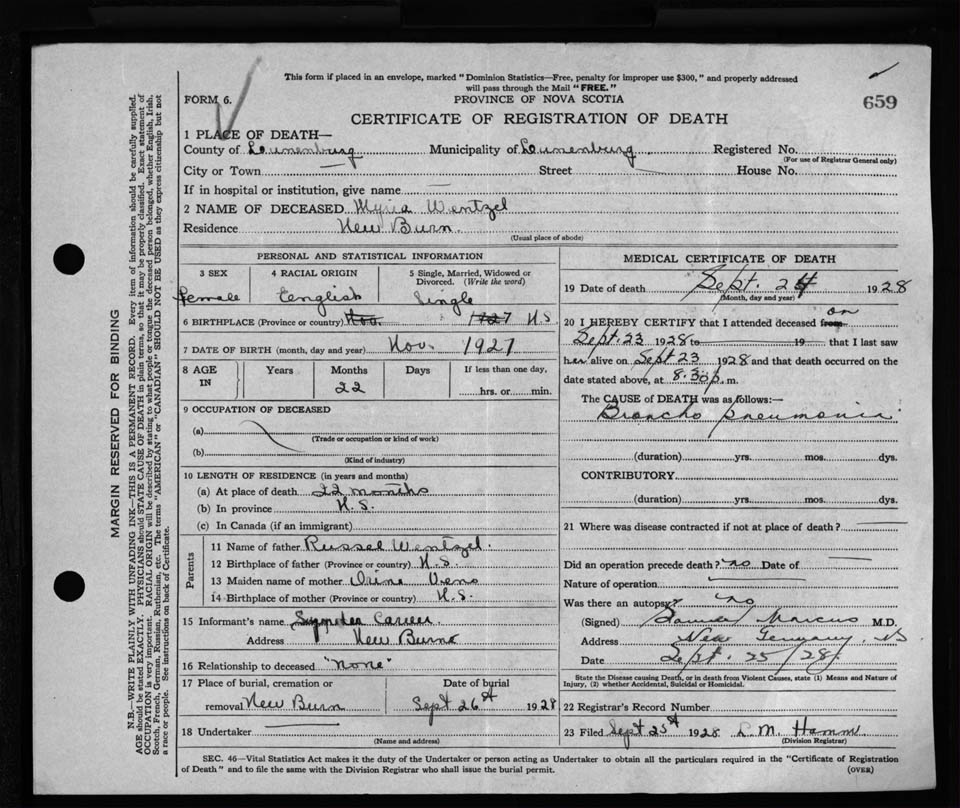 This form if placed in an envelope, marked "Dominion Statistics—Free, penalty for improper use $300," and properly addressed
will pass through the Mail "FREE."
FORM 6. PROVINCE OF NOVA SCOTIA 659
CERTIFICATE OF REGISTRATION OF DEATH
1 PLACE OF DEATH—
County of Lunenburg Municipality of Lunenburg Registered No.
(For use of Registrar General only)
City or Town — Street House No.
If in hospital or institution, give name —
2 NAME OF DECEASED Wentzel
Residence New Burn.
(Usual place of abode)
PERSONAL AND STATISTICAL INFORMATION
3 SEX 4 RACIAL ORIGIN 5 Single, Married, Widowed or Divorced. (Write the word)
Female English Single
6 BIRTHPLACE (Province or country) Nov. 1927 N.S.
7 DATE OF BIRTH (month, day and year) Nov. 1927
8 AGE IN Years Months Days If less than one day,
22 hrs. or min.
9 OCCUPATION OF DECEASED
(a)
(Trade or occupation or kind of work)
(b)
(Kind of industry)
10 LENGTH OF RESIDENCE (in years and months)
(a) At place of death 22 months
(b) In province N.S.
(c) In Canada (if an immigrant)
Parents
11 Name of father Russel Wentzel.
12 Birthplace of father (Province or country) N.S.
13 Maiden name of mother Veno
14 Birthplace of mother (Province or country) N.S.
15 Informant's name
Address New Burn
16 Relationship to deceased "none"
17 Place of burial, cremation or Date of burial
removal New Burn Sept 26th 1928
18 Undertaker
(Name and address)
MEDICAL CERTIFICATE OF DEATH
19 Date of death Sept. 24 1928
(Month, day and year)
20 I HEREBY CERTIFY that I attended deceased from on
Sept. 23 1928 to 19 — that I last saw
her alive on Sept 23 1928 and that death occurred on the
date stated above, at 8.30 p. m.
The CAUSE of DEATH was as follows:—
Broncho pneumonia
(duration) yrs. mos. dys.
CONTRIBUTORY.
(duration) yrs. mos. dys.
21 Where was disease contracted if not at place of death? —
Did an operation precede death? no Date of —
Nature of operation —
Was there an autopsy? no
(Signed) Samuel Marcus M.D.
Address New Germany NS
Date Sept. 25/28/
State the Disease causing Death, or in death from Violent Causes, state (1) Means and Nature of
Injury, (2) whether Accidental, Suicidal or Homicidal.
22 Registrar's Record Number
23 Filed Sept 25th 1928 L. M. Hamm
(Division Registrar)
SEC. 46—Vital Statistics Act makes it the duty of the Undertaker or person acting as Undertaker to obtain all the particulars required in the "Certificate of Registration
of Death" and to file the same with the Division Registrar who shall issue the burial permit. (OVER)
MARGIN RESERVED FOR BINDING
N.B.—WRITE PLAINLY WITH UNFADING INK—THIS IS A PERMANENT RECORD. Every item of information should be carefully supplied.
AGE should be stated EXACTLY. PHYSICIANS should STATE CAUSE OF DEATH in plain terms, so that it may be properly classified. Exact statement of
OCCUPATION is very important. RACIAL ORIGIN will be described by stating to what people or tongue the deceased person belonged, whether English, Irish,
Scotch, French, German, Russian, Ruthenian, etc. The terms "AMERICAN" or "CANADIAN" SHOULD NOT BE USED as they express citizenship but not
a race or people. See instructions on back of Certificate.